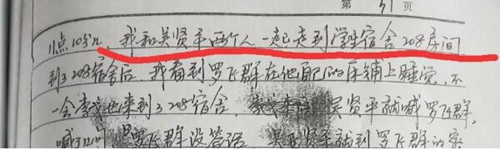 第 31 页
1点10分左右 我和吴贤平两个人一起走到学生宿舍208房间
到了208宿舍后，我看到罗飞群在他配的床铺上睡觉，不
一会李 也来到了208宿舍， 吴贤平就喊罗飞群，
喊了几句 罗飞群没答话 吴贤平就到罗飞群的